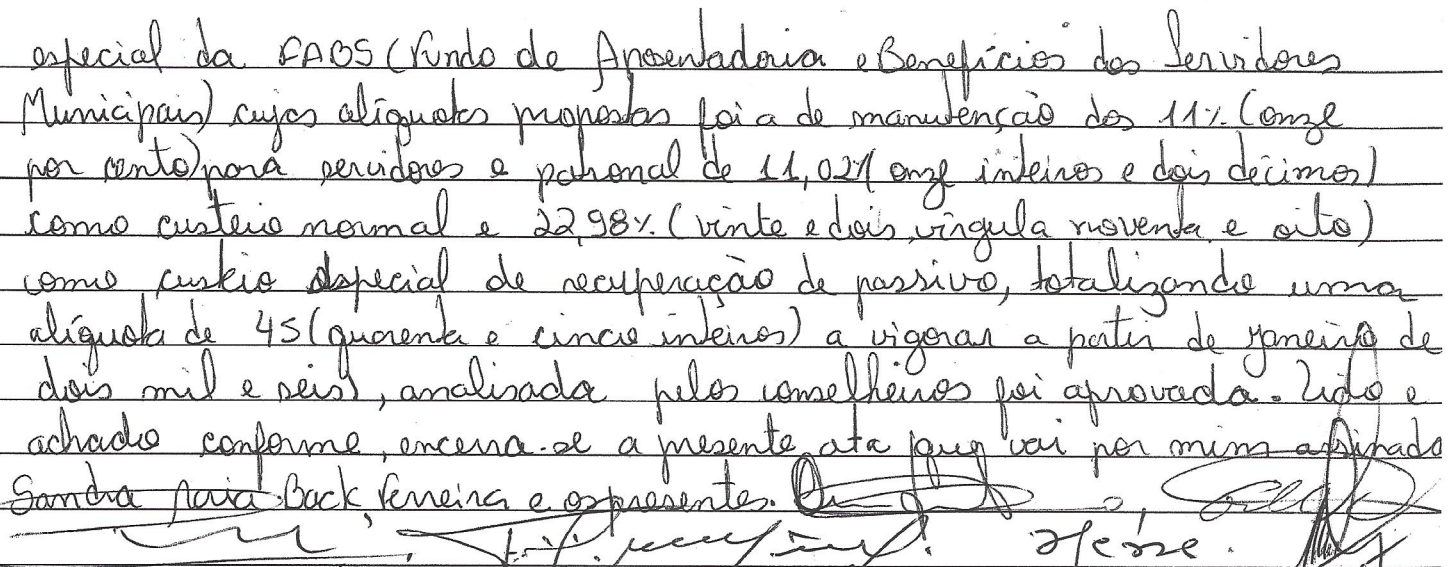 especial da FABS (Fundo de Aposentadoria e Benefícios dos Servidores
Municipais) cujas alíquotas propostas foi a de manutenção dos 11% (onze
por cento) para servidores e patronal de 11,02% (onze inteiros e dois décimos)
como custeio normal e 22,98% (vinte e dois, vírgula noventa e oito)
como custeio especial de recuperação de passivo, totalizando uma
alíquota de 45 (quarenta e cinco inteiros) a vigorar a partir de janeiro de
dois mil e seis), analisada pelos conselheiros foi aprovada. Lido e
achado conforme, encerra-se a presente ata que vai por mim assinado
Sandra Back Ferreira e os presentes.